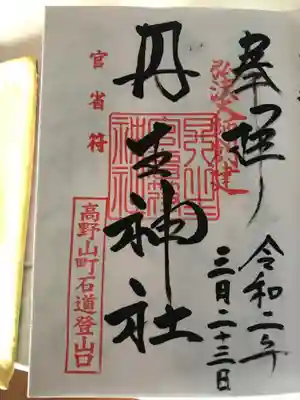 奉拝
弘法大師創建
令和二年
三月二十三日
丹生神社
官省符
高野山町石道登山口